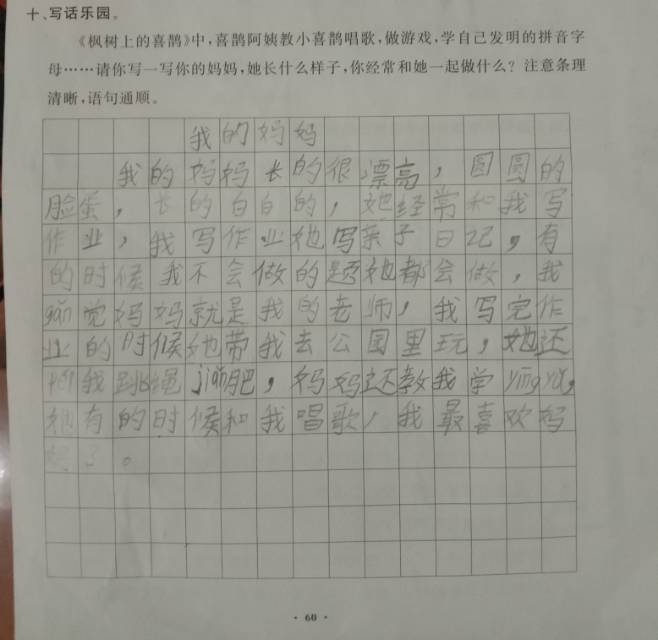 十、写话乐园。
《枫树上的喜鹊》中，喜鹊阿姨教小喜鹊唱歌，做游戏，学自己发明的拼音字
母……请你写一写你的妈妈，她长什么样子，你经常和她一起做什么？注意条理
清晰，语句通顺。
我的妈妈
我的妈妈长的很漂高，圆圆的
脸蛋，长的白白的，她经常和我写
作业，我写作业她写亲子日记，有
的时候我不会做的题她都会做，我
gǎn觉妈妈就是我的老师，我写完作
业的时候她带我去公园里玩，她还
我跳绳jiǎn肥，妈妈还教我学yīng yǔ，
她有的时候和我唱歌，我最喜欢妈
了。
· 60 ·